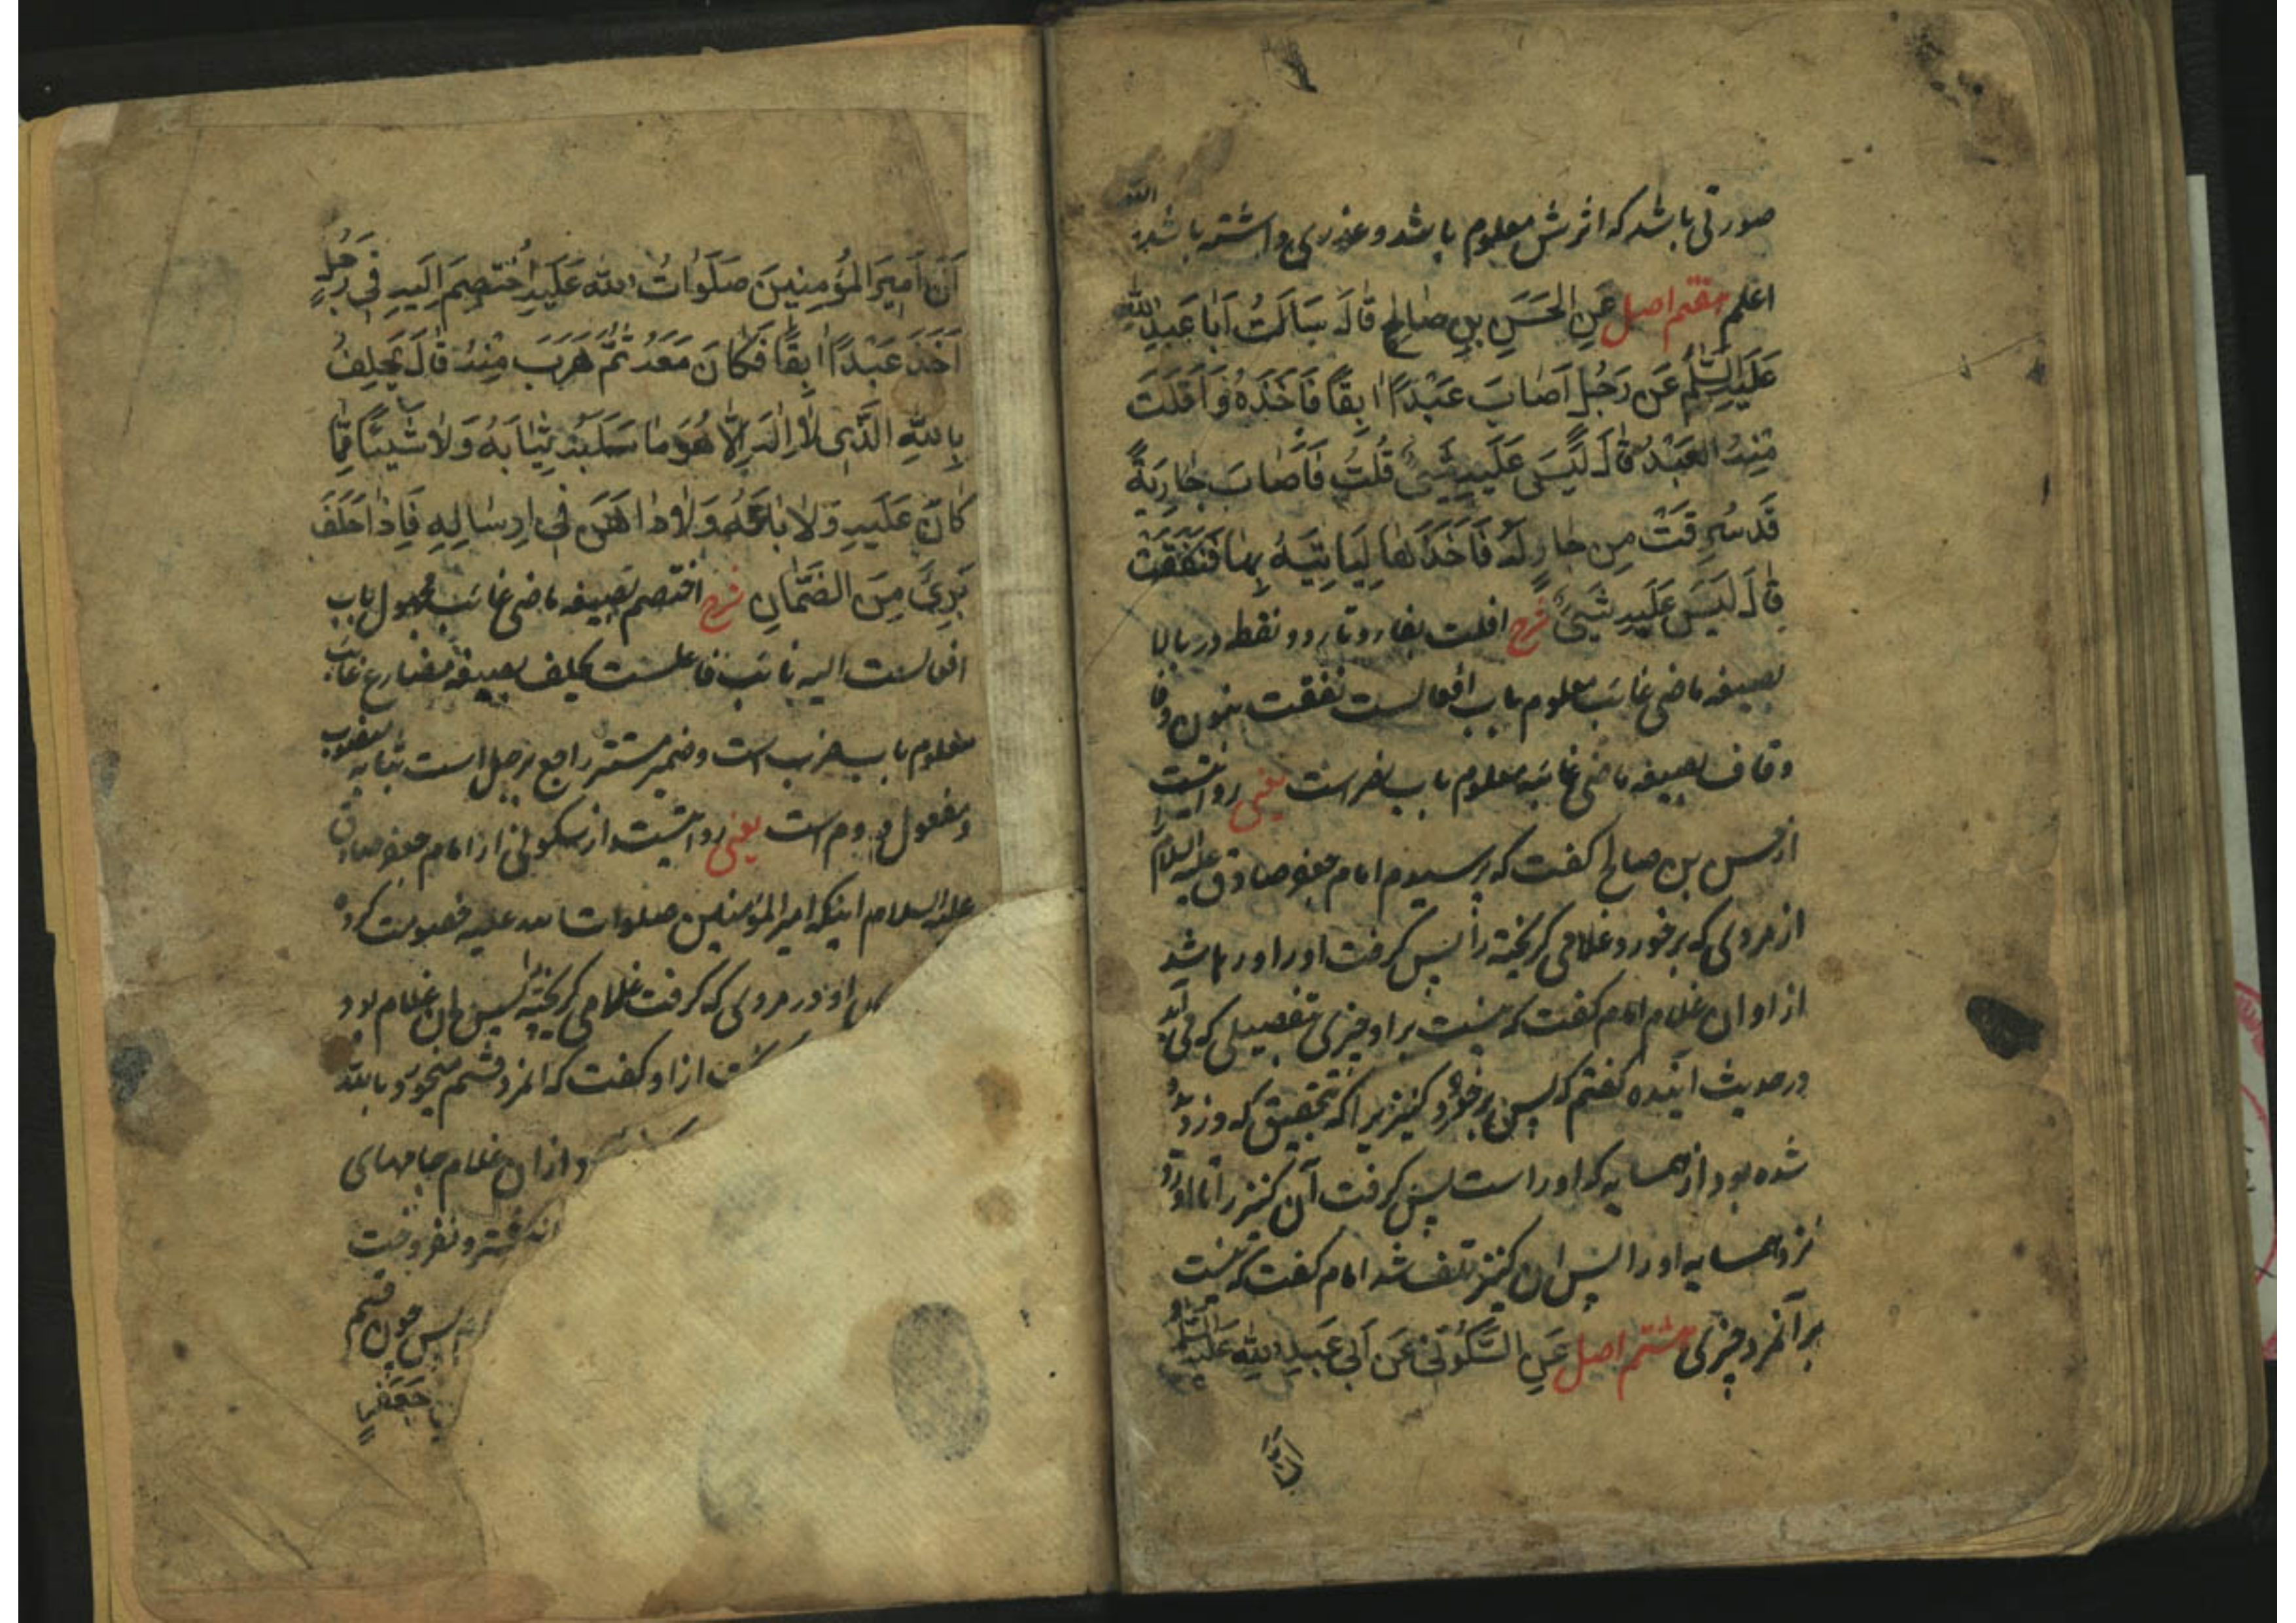 صورتی باشد که اثرش معلوم باشد و عذری داشته باشد الله
اعلم هفتم اصل عَنِ الحَسَنِ بنِ صالِحٍ قالَ سَاَلتُ اَبا عَبدِ الله
عَلَیهِ السَّلم عَن رَجُلٍ اَصابَ عَبْدًا ابِقًا فَاَخَذَهُ وَاَفلَتَ
مِنهُ العَبْدُ قالَ لَیسَ عَلَیهِ شَیئٌ قُلتُ فَاَصابَ جارِیَةً
قَد سُرِقَتْ مِن جارٍ لَهُ فَاَخَذَها لِیَاتِیَهُ بِها فَنَفَقَتْ
قالَ لَیسَ عَلَیهِ شَیئٌ شرح افلت بفاء و تاء دو نقطه در بالا
بصیغه ماضی غائب معلوم باب افعالست نفقت بنون و فا
و قاف بصیغه ماضی غائبه معلوم باب نصر است یعنی روایتست
از حسن بن صالح گفت که پرسیدم امام جعفر صادق علیه السلام
از مردی که برخورد غلامی گریخته را پس گرفت او را و رها شد
از او ان غلام امام گفت که نیست بر او چیزی بتفصیلی که می آید
در حدیث اینده گفتم که پس برخورد کنیزیرا که بتحقیق که دزدیده
شده بود از همسایه که او راست پس گرفت آن کنیز را تا آورد
نزد همسایه او را پس ان کنیز تلف شد امام گفت که نیست
بر آنمرد چیزی هشتم اصل عَنِ السَّکُونی عَن اَبی عَبدِ اللهِ عَلَیهِ السَّلم
اَنَّ اَمیرَ المُؤمِنینَ صَلَواتُ اللهِ عَلَیهِ اُختُصِمَ اِلَیهِ فی رَجُلٍ
اَخَذَ عَبْدًا ابِقًا فَکانَ مَعَهُ ثُمَّ هَرَبَ مِنهُ قالَ یَحلِفُ
بِاللهِ الَّذی لا اِلهَ اِلّا هُوَ ما سَلَبَهُ ثِیابَهُ وَلا شَیئًا مِمّا
کانَ عَلَیهِ وَلا باعَهُ وَلا داهَنَ فی اِرسالِهِ فَاِذا حَلَفَ
بَرِئَ مِنَ الضَّمانِ شرح اختصم بصیغه ماضی غائب مجهول باب
افعالست الیه نائب فاعلست یحلف بصیغه مضارع غائب
معلوم باب ضرب است و ضمیر مستتر راجع برجل است ثیابه منصوب
و مفعول دوم است یعنی روایتست از سکونی از امام جعفر صادق
علیه السلام اینکه امیر المؤمنین صلوات الله علیه خصومت کرده
او در مردی که گرفت غلامی گریخته را پس ان غلام بود
از او گفت که انمرد قسم میخورد بالله
از ان غلام جامهای
و نفروخت
پس چون قسم
جَعفَرٍ